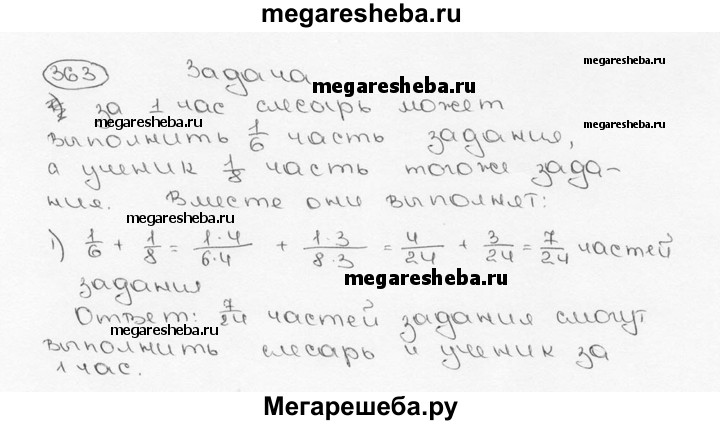 megaresheba.ru
363 Задача
megaresheba.ru
megaresheba.ru
за 1 час слесарь может
megaresheba.ru
выполнить 1/6 часть задания,
а ученик 1/8 часть тогоже зада-
ния. Вместе они выполнят:
megaresheba.ru
1) 1/6 + 1/8 = 1·4/6·4 + 1·3/8·3 = 4/24 + 3/24 = 7/24 частей
megaresheba.ru
задания
Ответ: 7/24 частей задания смогут
megaresheba.ru
выполнить слесарь и ученик за
1 час.
Мегарешеба.ру